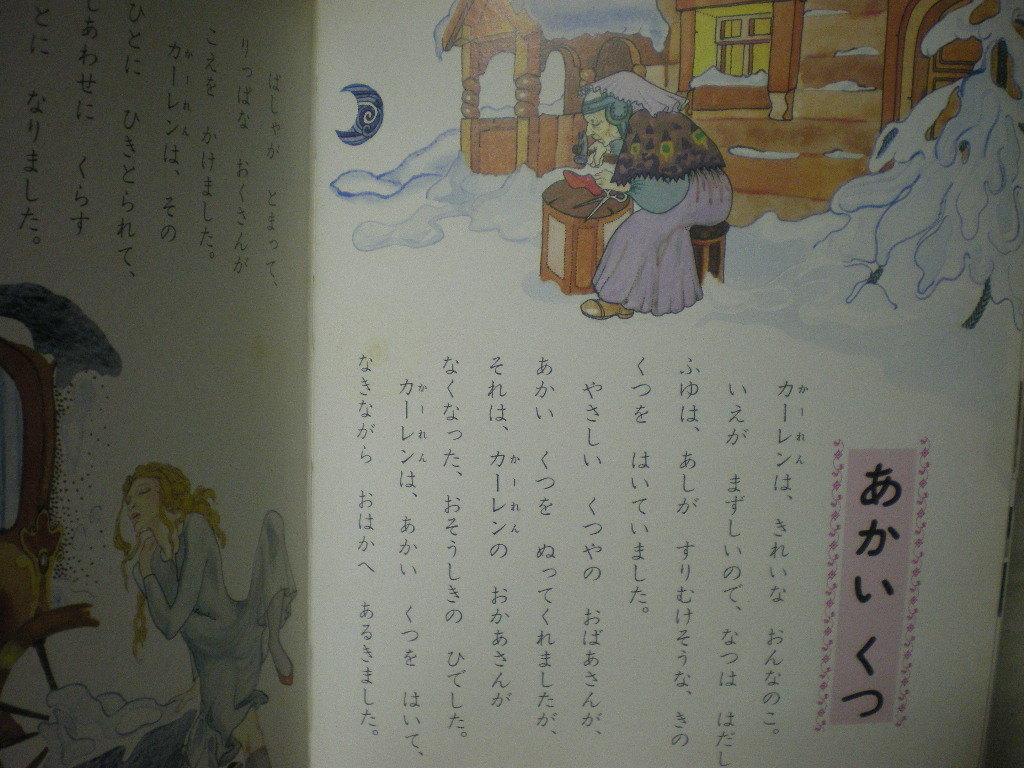 あかい くつ
かーれん
カーレンは、きれいな おんなのこ。
いえが まずしいので、なつは はだし
ふゆは、あしが すりむけそうな、きの
くつを はいていました。
やさしい くつやの おばあさんが、
あかい くつを ぬってくれましたが、
かーれん
それは、カーレンの おかあさんが
なくなった、おそうしきの ひでした。
かーれん
カーレンは、あかい くつを はいて、
なきながら おはかへ あるきました。
ばしゃが とまって、
りっぱな おくさんが
こえを かけました。
かーれん
カーレンは、その
ひとに ひきとられて、
しあわせに くらす
とに なりました。